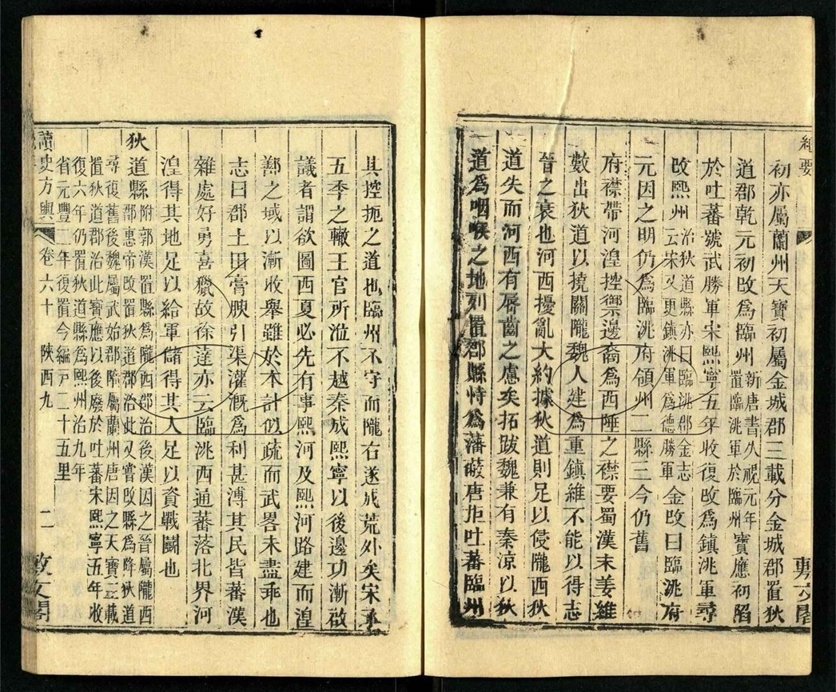 紀要
初亦屬蘭州天寶初屬金城郡三載分金城郡置狄
道郡乾元初改爲臨州新唐書久視元年置臨洮軍於臨州寶應初陷
於吐蕃號武勝軍宋熙寧五年收復改爲鎮洮軍尋
改熙州治狄道縣亦曰臨洮郡金志云宋又更鎮洮軍爲德勝軍金改曰臨洮府
元因之明仍爲臨洮府領州二縣三今仍舊
府襟帶河湟控禦邊裔爲西陲之襟要蜀漢末姜維
數出狄道以撓關隴魏人建爲重鎮維不能以得志
晉之衰也河西擾亂大約據狄道則足以侵隴西狄
道失而河西有脣齒之慮矣拓跋魏兼有秦涼以狄
道爲咽喉之地列置郡縣恃爲藩蔽唐拒吐蕃臨州
敷文閣
其控扼之道也臨州不守而隴右遂成荒外矣宋承
五季之轍王官所涖不越秦成熙寧以後邊功漸啟
議者謂欲圖西夏必先有事熙河及熙河路建而湟
鄯之域以漸收舉雖於本計似疏而武畧未盡乖也
志曰郡土田膏腴引渠灌溉爲利甚溥其民皆蕃漢
雜處好勇喜獵故徐達亦云臨洮西通蕃落北界河
湟得其地足以給軍儲得其人足以資戰鬬也
狄道縣附郭漢置縣爲隴西郡治後漢因之晉屬隴西郡惠帝改置狄道郡治此又嘗改縣爲降狄道
尋復舊後魏屬武始郡隋屬蘭州唐因之天寶三載置狄道郡治此寶應以後廢於吐蕃宋熙寧五年收
復六年仍置狄道縣爲熙州治九年省元豐二年復置今編戶二十五里
讀史方輿
卷六十
陝西九
二
敷文閣